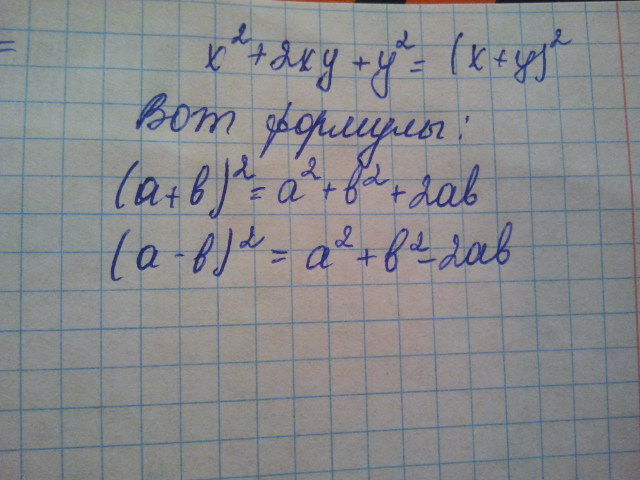 =
x² + 2xy + y² = (x + y)²
Вот формулы:
(a + b)² = a² + b² + 2ab
(a - b)² = a² + b² - 2ab